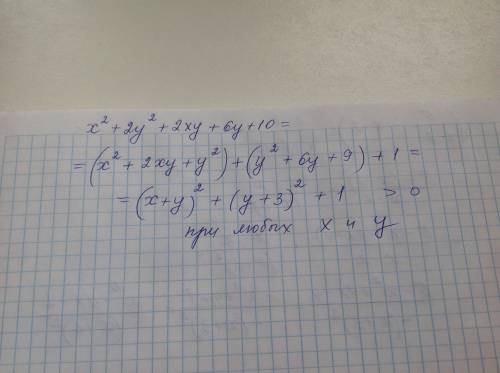 x² + 2y² + 2xy + 6y + 10 =
= (x² + 2xy + y²) + (y² + 6y + 9) + 1 =
= (x+y)² + (y+3)² + 1 > 0
при любых x и y